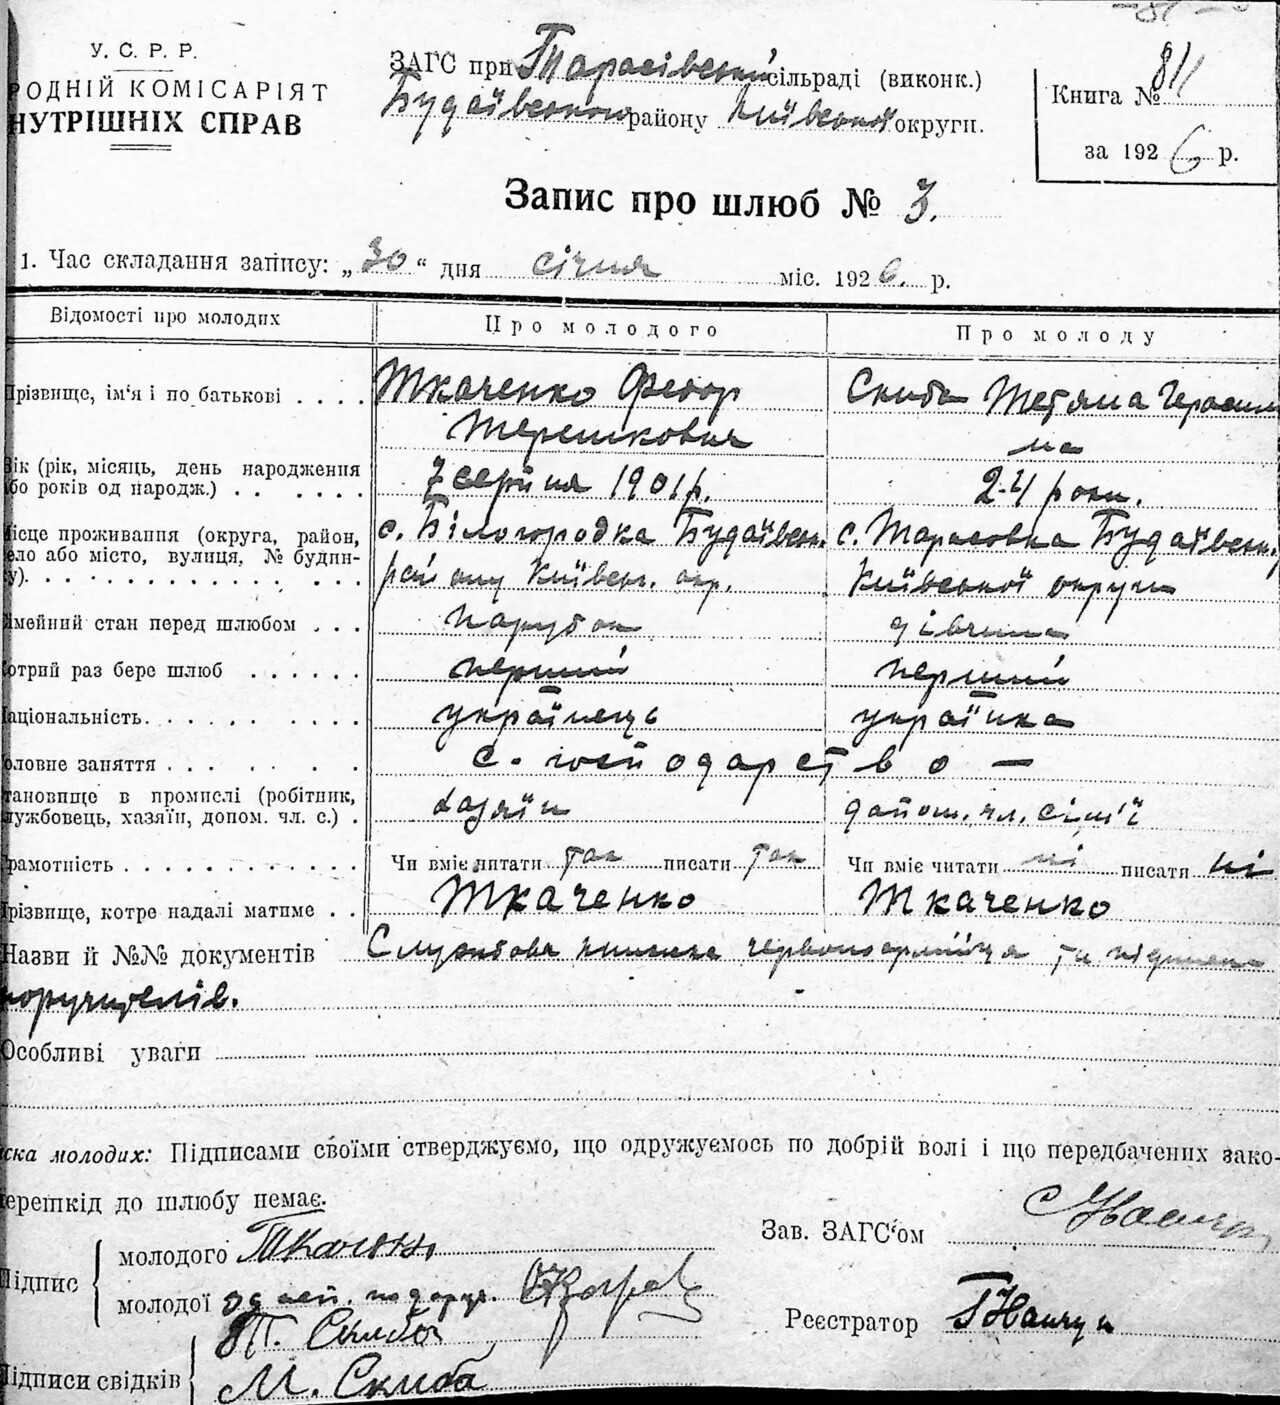 У. С. Р. Р.
РОДНІЙ КОМІСАРІЯТ
НУТРІШНІХ СПРАВ
ЗАГС при Тарасівській сільраді (виконк.)
Будаївського району Київської округи.
Книга № 811
за 1926 р.
Запис про шлюб № 3.
1. Час складання запису: „30“ дня січня міс. 1926. р.
Відомості про молодих Про молодого Про молоду
Прізвище, ім'я і по батькові Ткаченко Федор Скиба Тетяна Герасим
Терешкович на
Вік (рік, місяць, день народження
або років од народж.) 7 серпня 1901 р. 24 роки.
Місце проживання (округа, район, с. Білогородка Будаївськ. с. Тарасовка Будаївськ.
село або місто, вулиця, № будин-
ку) району Київськ. окр. Київської округи
імейний стан перед шлюбом парубок дівчина
Котрий раз бере шлюб перший перший
Національність українець українка
оловне заняття с. господарство —
тановище в промислі (робітник,
лужбовець, хазяїн, допом. чл. с.) хазяїн допом. чл. сім'ї
рамотність Чи вміє читати так писати так Чи вміє читати ні писати ні
Прізвище, котре надалі матиме Ткаченко Ткаченко
Назви й №№ документів Службова книжка червоноармійця та підписка
поручителів.
Особливі уваги
ска молодих: Підписами своїми стверджуємо, що одружуємось по добрій волі і що передбачених зако-
ерешкід до шлюбу немає.
Зав. ЗАГС'ом
Підпис молодого Ткаченко
молодої
Реєстратор
Т. Скиба
Підписи свідків М. Скиба